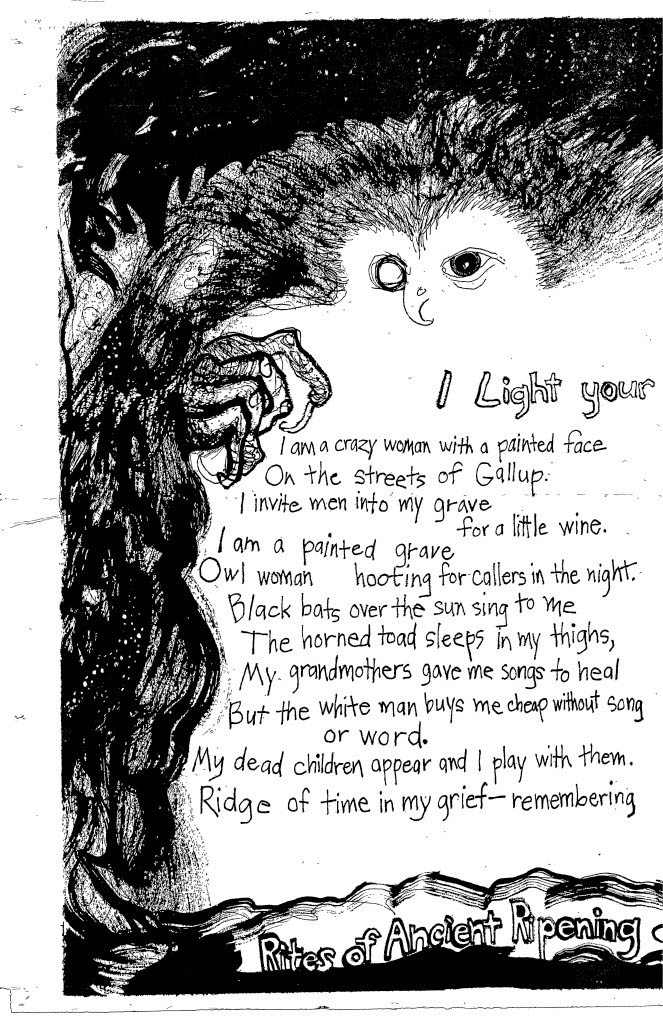 I Light your
I am a crazy woman with a painted face
On the streets of Gallup.
I invite men into my grave
for a little wine.
I am a painted grave
Owl woman hooting for callers in the night.
Black bats over the sun sing to me
The horned toad sleeps in my thighs,
My grandmothers gave me songs to heal
But the white man buys me cheap without song
or word.
My dead children appear and I play with them.
Ridge of time in my grief— remembering
Rites of Ancient Ripening